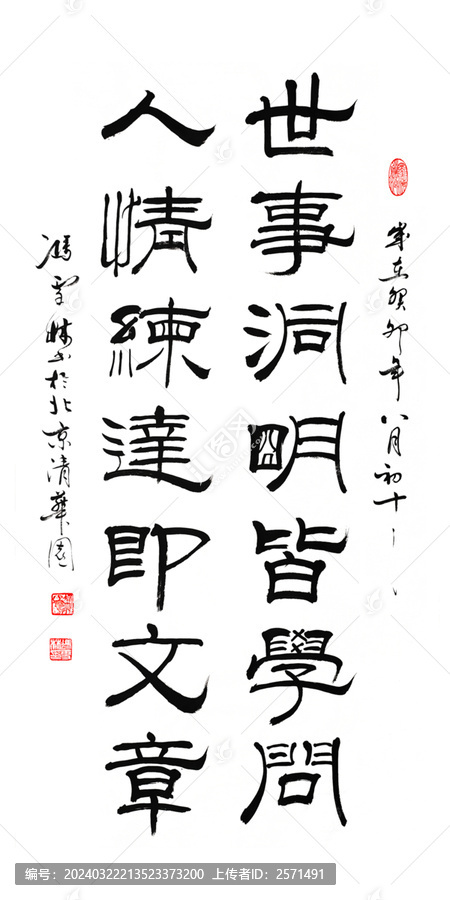 歲在癸卯年八月初十
世事洞明皆學問
人情練達即文章
馮雪林书於北京清華園
编号：20240322213523373200 上传者ID：2571491